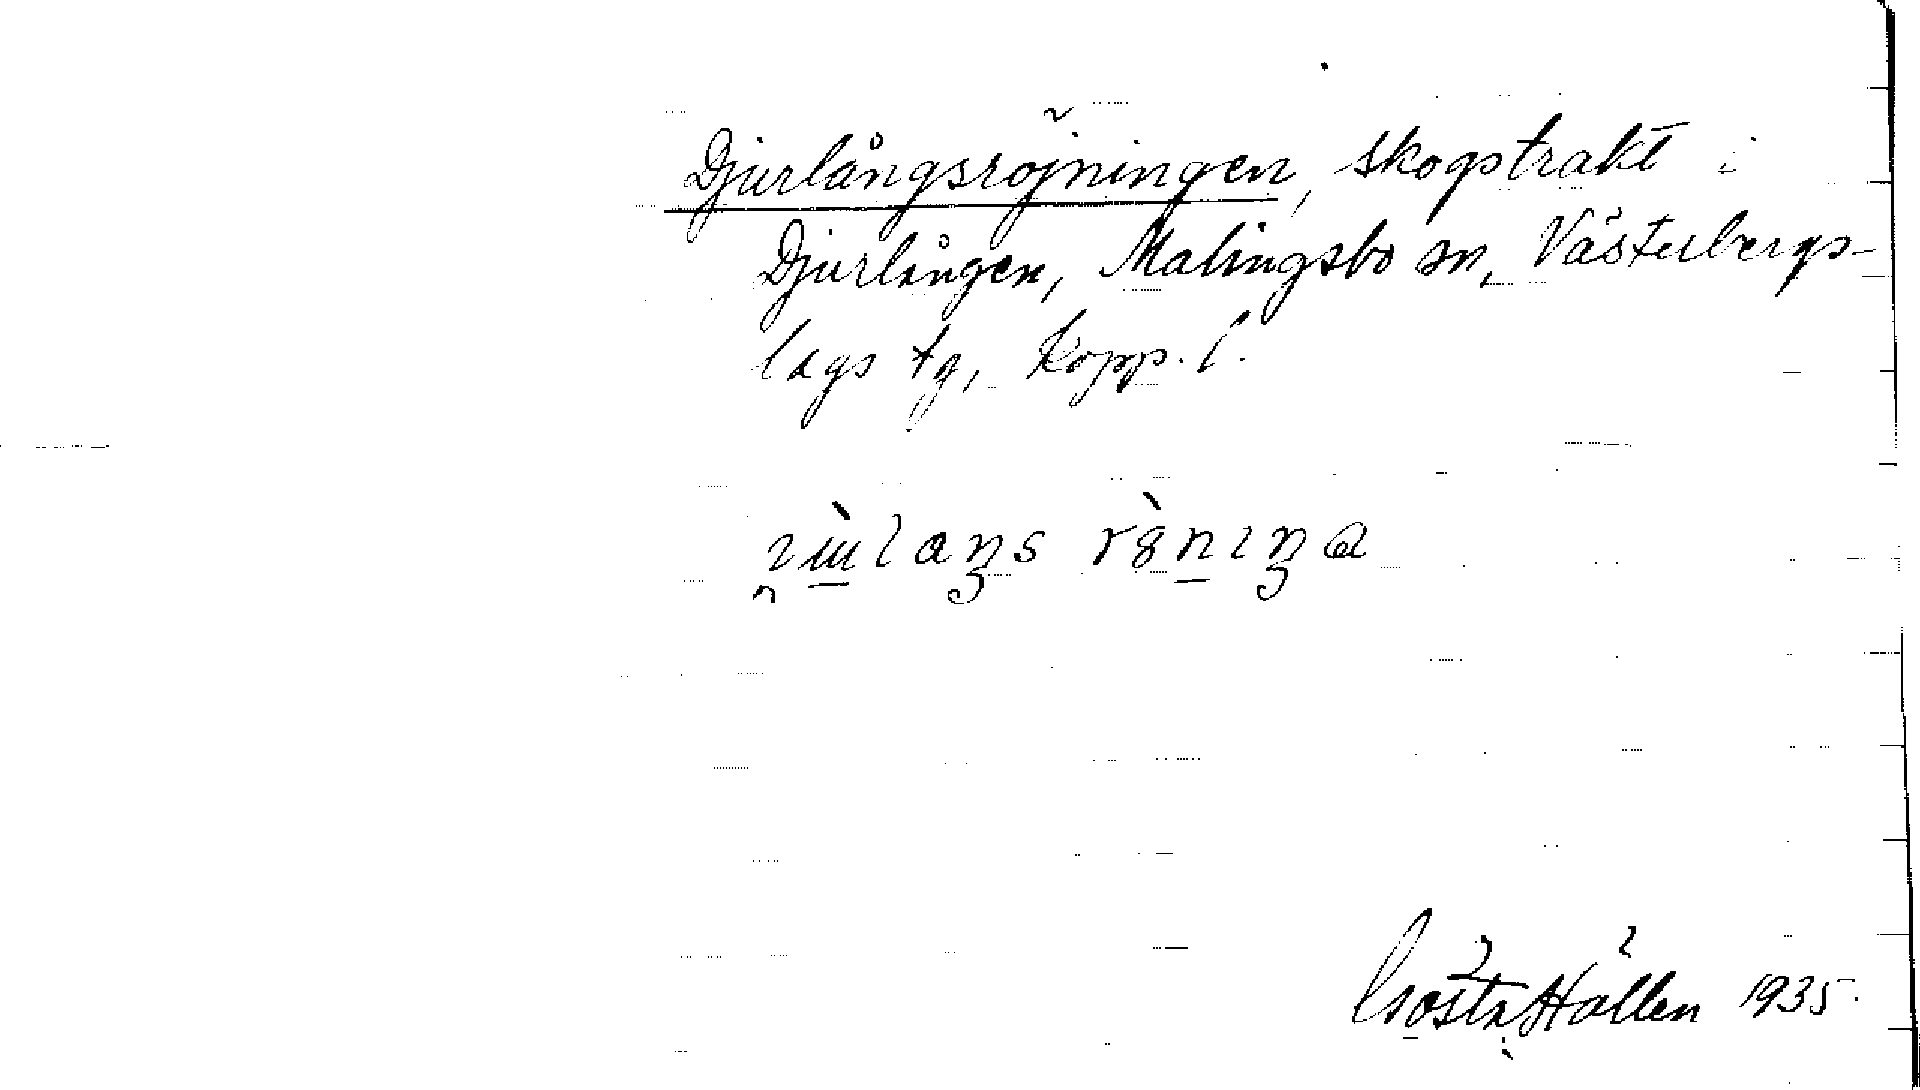 Djurlångsröjningen, skogstrakt i
Djurlången, Malingsbo sn, Västerbergs-
lags tg, Kopp. l.
Gösta Hällen 1935.